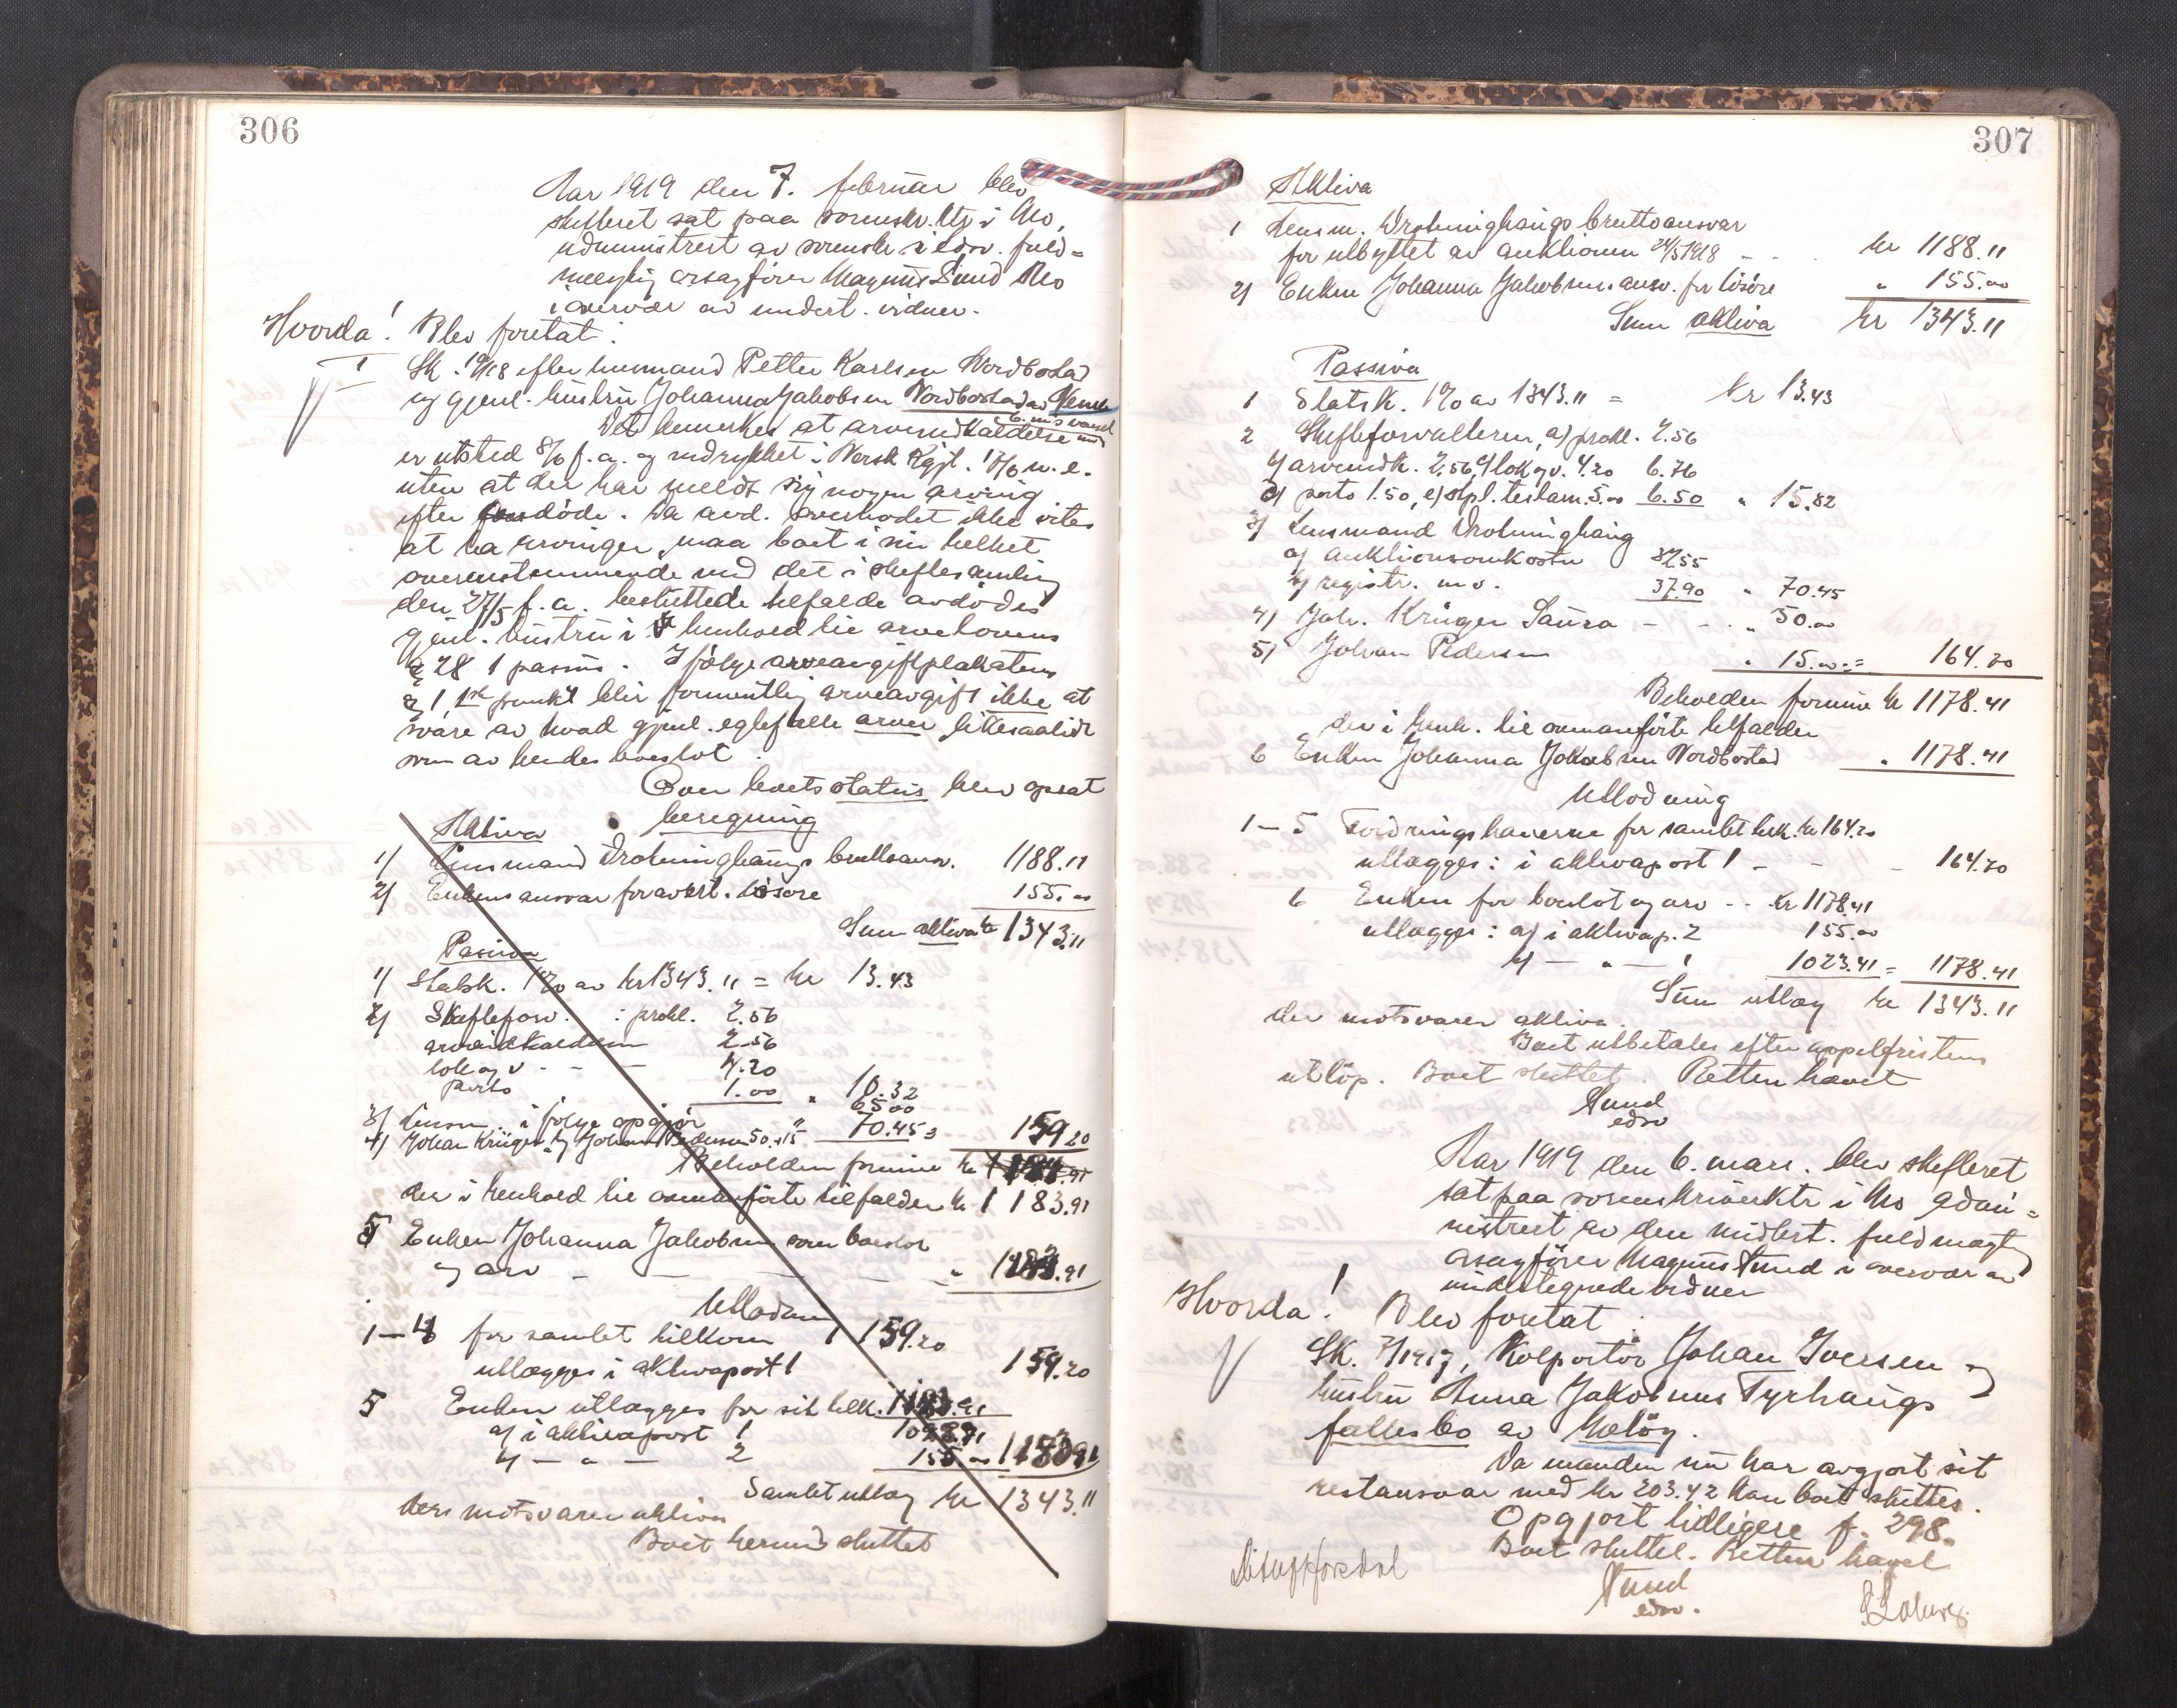 306
Aar 1919 den 7. februar blev
skifteret sat paa sorenskr. ktr i Mo,
administrert av sorenskr. i edsv. fuld=
mægtig orsagfører Magnus Sund Mo
i overvær av undert. vidner.
Hvorda! Blev foretat:
I Sk. 10/18 efter husmand Petter Karlsen Nordbostad
og gjenl. hustru Johanna Jakobsen Nordbostad av
Det bemerkes at arveindkaldelse
er utsted 8/6 f. a. og indrykket i Norsk Kgjt. n. e.
uten at der har meldt sig nogen arving
efter døde. Da avd. overhodet ikke vites
at ha arvinger, maa boet i sin helhet
overenstemmende med det i skiftesamling
den 27/5 f. a. besluttede tilfalde avdødes
gjenl. hustru i henhold til arvelovens
§ 28 1 passus. Ifølge arveavgiftplakatens
§ 1 1ste punkt blir formentlig arveavgift ikke at
svare av hvad gjenl. egtefælle arver likesaalidt
som av hendes boeslot.
Over boets status blev opsat
beregning
Aktiva
1) Lensmand Drotninghaugs bruttoansv. 1188.11
2) Enkens ansvar for avert. løsøre 155.00
Sum aktiva kr 1343.11
Passiva
1) Statsk. 1% av kr 1343.11 = kr 13.43
2) Skifteforv. : prokl. 2.56
arveindkaldelsen 2.56
lok og v - - - 4.20
Porto 1.00 " 10.32
3) Lensm. i følge opgjør 70.45
4) Johan Krüger og Johan Pedersen 50+15 65.00 159.20
Beholden formue kr
der i henhold til ovenanførte tilfalder kr 1183.91
5 Enken Johanna Jakobsen som boeslot
og arv - - - - - " 1183.91
Utlodn
1–4 for samlet tilkom 159.20
utlægges i aktivapost 1 159.20
5 Enken utlægges for sit tilk. 1183.91
a) i aktivapost 1 1028.91
b) — " — 2 155.00 1183.91
Samlet utlæg kr 1343.11
der motsvarer aktiva
Boet hermed sluttet
307
Aktiva
1 Lensm. Drotninghaugs bruttoansvar
for utbyttet av auktionen 24/5 1918 - - - kr 1188.11
2) Enken Johanna Jakobsens ansv. for løsøre " 155.00
Sum aktiva kr 1343.11
Passiva
1 Statsk. 1% av 1343.11 = Kr 13.43
2 Skifteforvalteren, a) prokl. 2.56
b) arveindk. 2.56, c) lok og v. 4.20 6.76
d) porto 1.50, e) stpl. testam. 5.00 6.50 " 15.82
3) Lensmand Drotninghaug
a) auktionsomkostn 32.55
b) registr. m.v. 37.90 " 70.45
4) Joh. Krüger Saura - - - " 50.00
5) Johan Pedersen " 15.00 = 164.70
Beholden formue kr 1178.41
der i henh. til ovenanførte tilfalder
6 Enken Johanna Jakobsen Nordbostad " 1178.41
Utlodning
1–5 Fordringshaverne for samlet tilk. kr 164.70
utlægges: i aktivapost 1 - - - 164.70
6 Enken for boeslot og arv - - kr 1178.41
utlægges: a) i aktivap. 2 155.00
b) — " — 1 1023.41 = 1178.41
Sum utlæg kr 1343.11
der motsvarer aktiva.
Boet utbetales efter appelfristens
utløp. Boet sluttet. Retten hævet
Sund
edsv
Aar 1919 den 6. mars. blev skifteret
sat paa sorenskriverktr i Mo admi=
nistrert av den midlert. fuldmægtig
orsagfører Magnus Sund i overvær av
undertegnede vidner
Hvorda! Blev foretat:
Sk. 7/1917, Kolportør Johan Iversen og
hustru Anna Jakobsens Tyrhaugs
fællesbo av Meløy.
Da manden nu har avgjort sit
restansvar med kr 203.42 kan boet sluttes.
Opgjort tidligere f. 298.
Boet sluttet. Retten hævet
Sund
edsv.